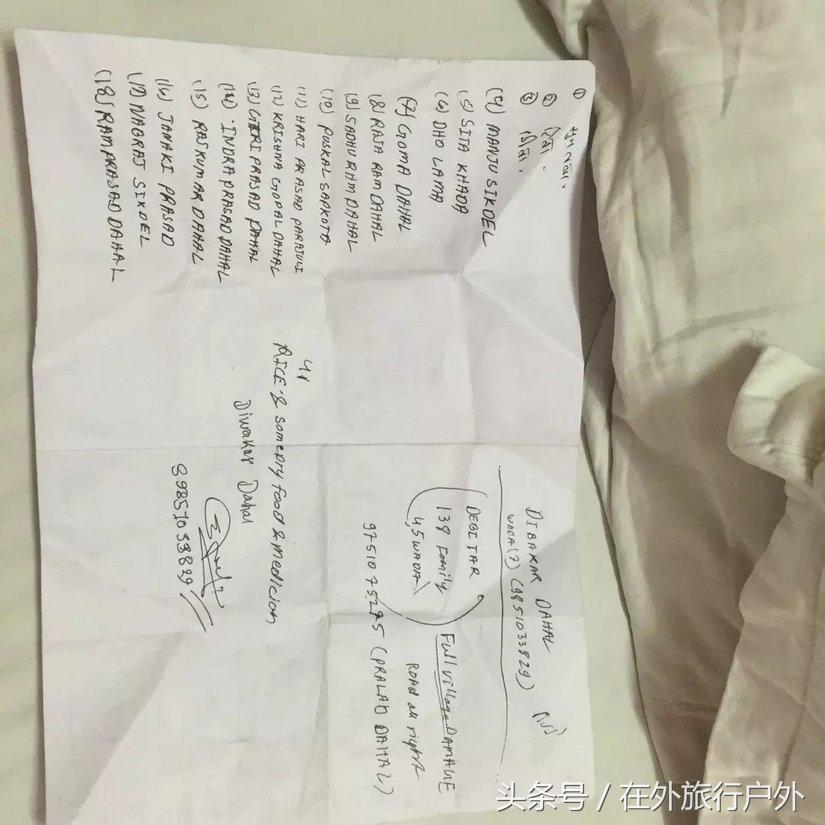 ①
②
③
(4) MANJU SIKDEL
(5) SITA KHADA
(6) DHO LAMA
(7) GOMA DAHAL
(8) RAJA RAM DAHAL
(9) SADHU RAM DAHAL
(10) PUSKAL SAPKOTA
(11) HARI PRASAD PARAJULI
(12) KRISHNA GOPAL DAHAL
(13) PRASAD DAHAL
(14) INDRA PRASAD DAHAL
(15) RAJ KUMAR DAHAL
(16) JANAKI PRASAD
(17) NAGRAJ SIKDEL
(18) RAM PRASAD DAHAL
DIBAKAR DAHAL
WADA (7) (9851033829)
DEBITAR
139 Family
4,5 WADA
Full village DAMAGE
ROAD all right
(PRALAD DAHAL)
RICE & some DRY food & medician
Diwakar Dahal
头条号 / 在外旅行户外